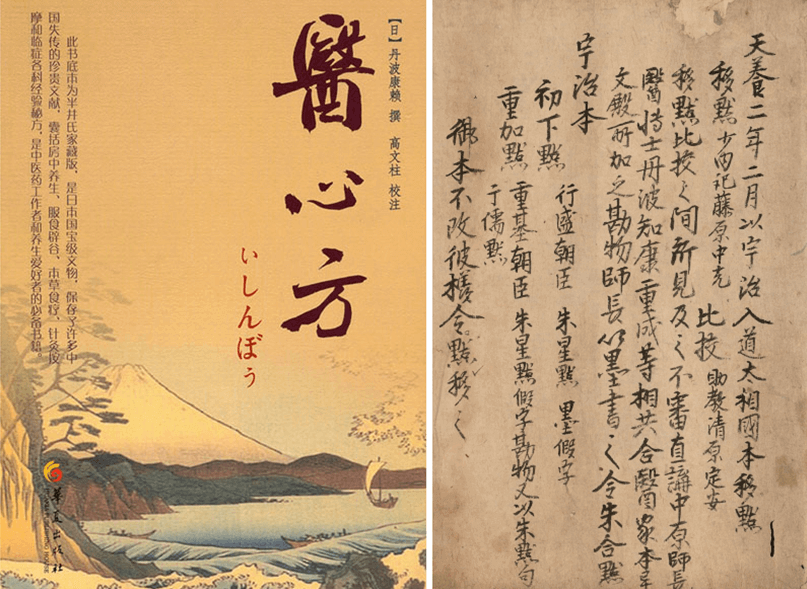 【日】丹波康赖 撰 高文柱 校注
醫心方
いしんぼう
此书底本为半井氏家藏版，是日本国宝级文物，保存了许多中
国失传的珍贵文献，囊括房中养生、服食辟谷、本草食疗、针灸按
摩和临症各科经验秘方，是中医药工作者和养生爱好者的必备书籍。
華夏出版社
天養二年二月以宇治入道太相國本移點
移點 少内記藤原中光 比挍 助教清原定安
移點比挍之間所見及之不審直講中原師長
醫博士丹波知康重成等相共合醫家本等
文殿所加之勘物師長以墨書之令朱合點
宇治本
初下點 行盛朝臣 朱星點 墨假字
重加點 重基朝臣 朱星點假字勘物又以朱點句
于儒點
御本不改彼樣令點移之